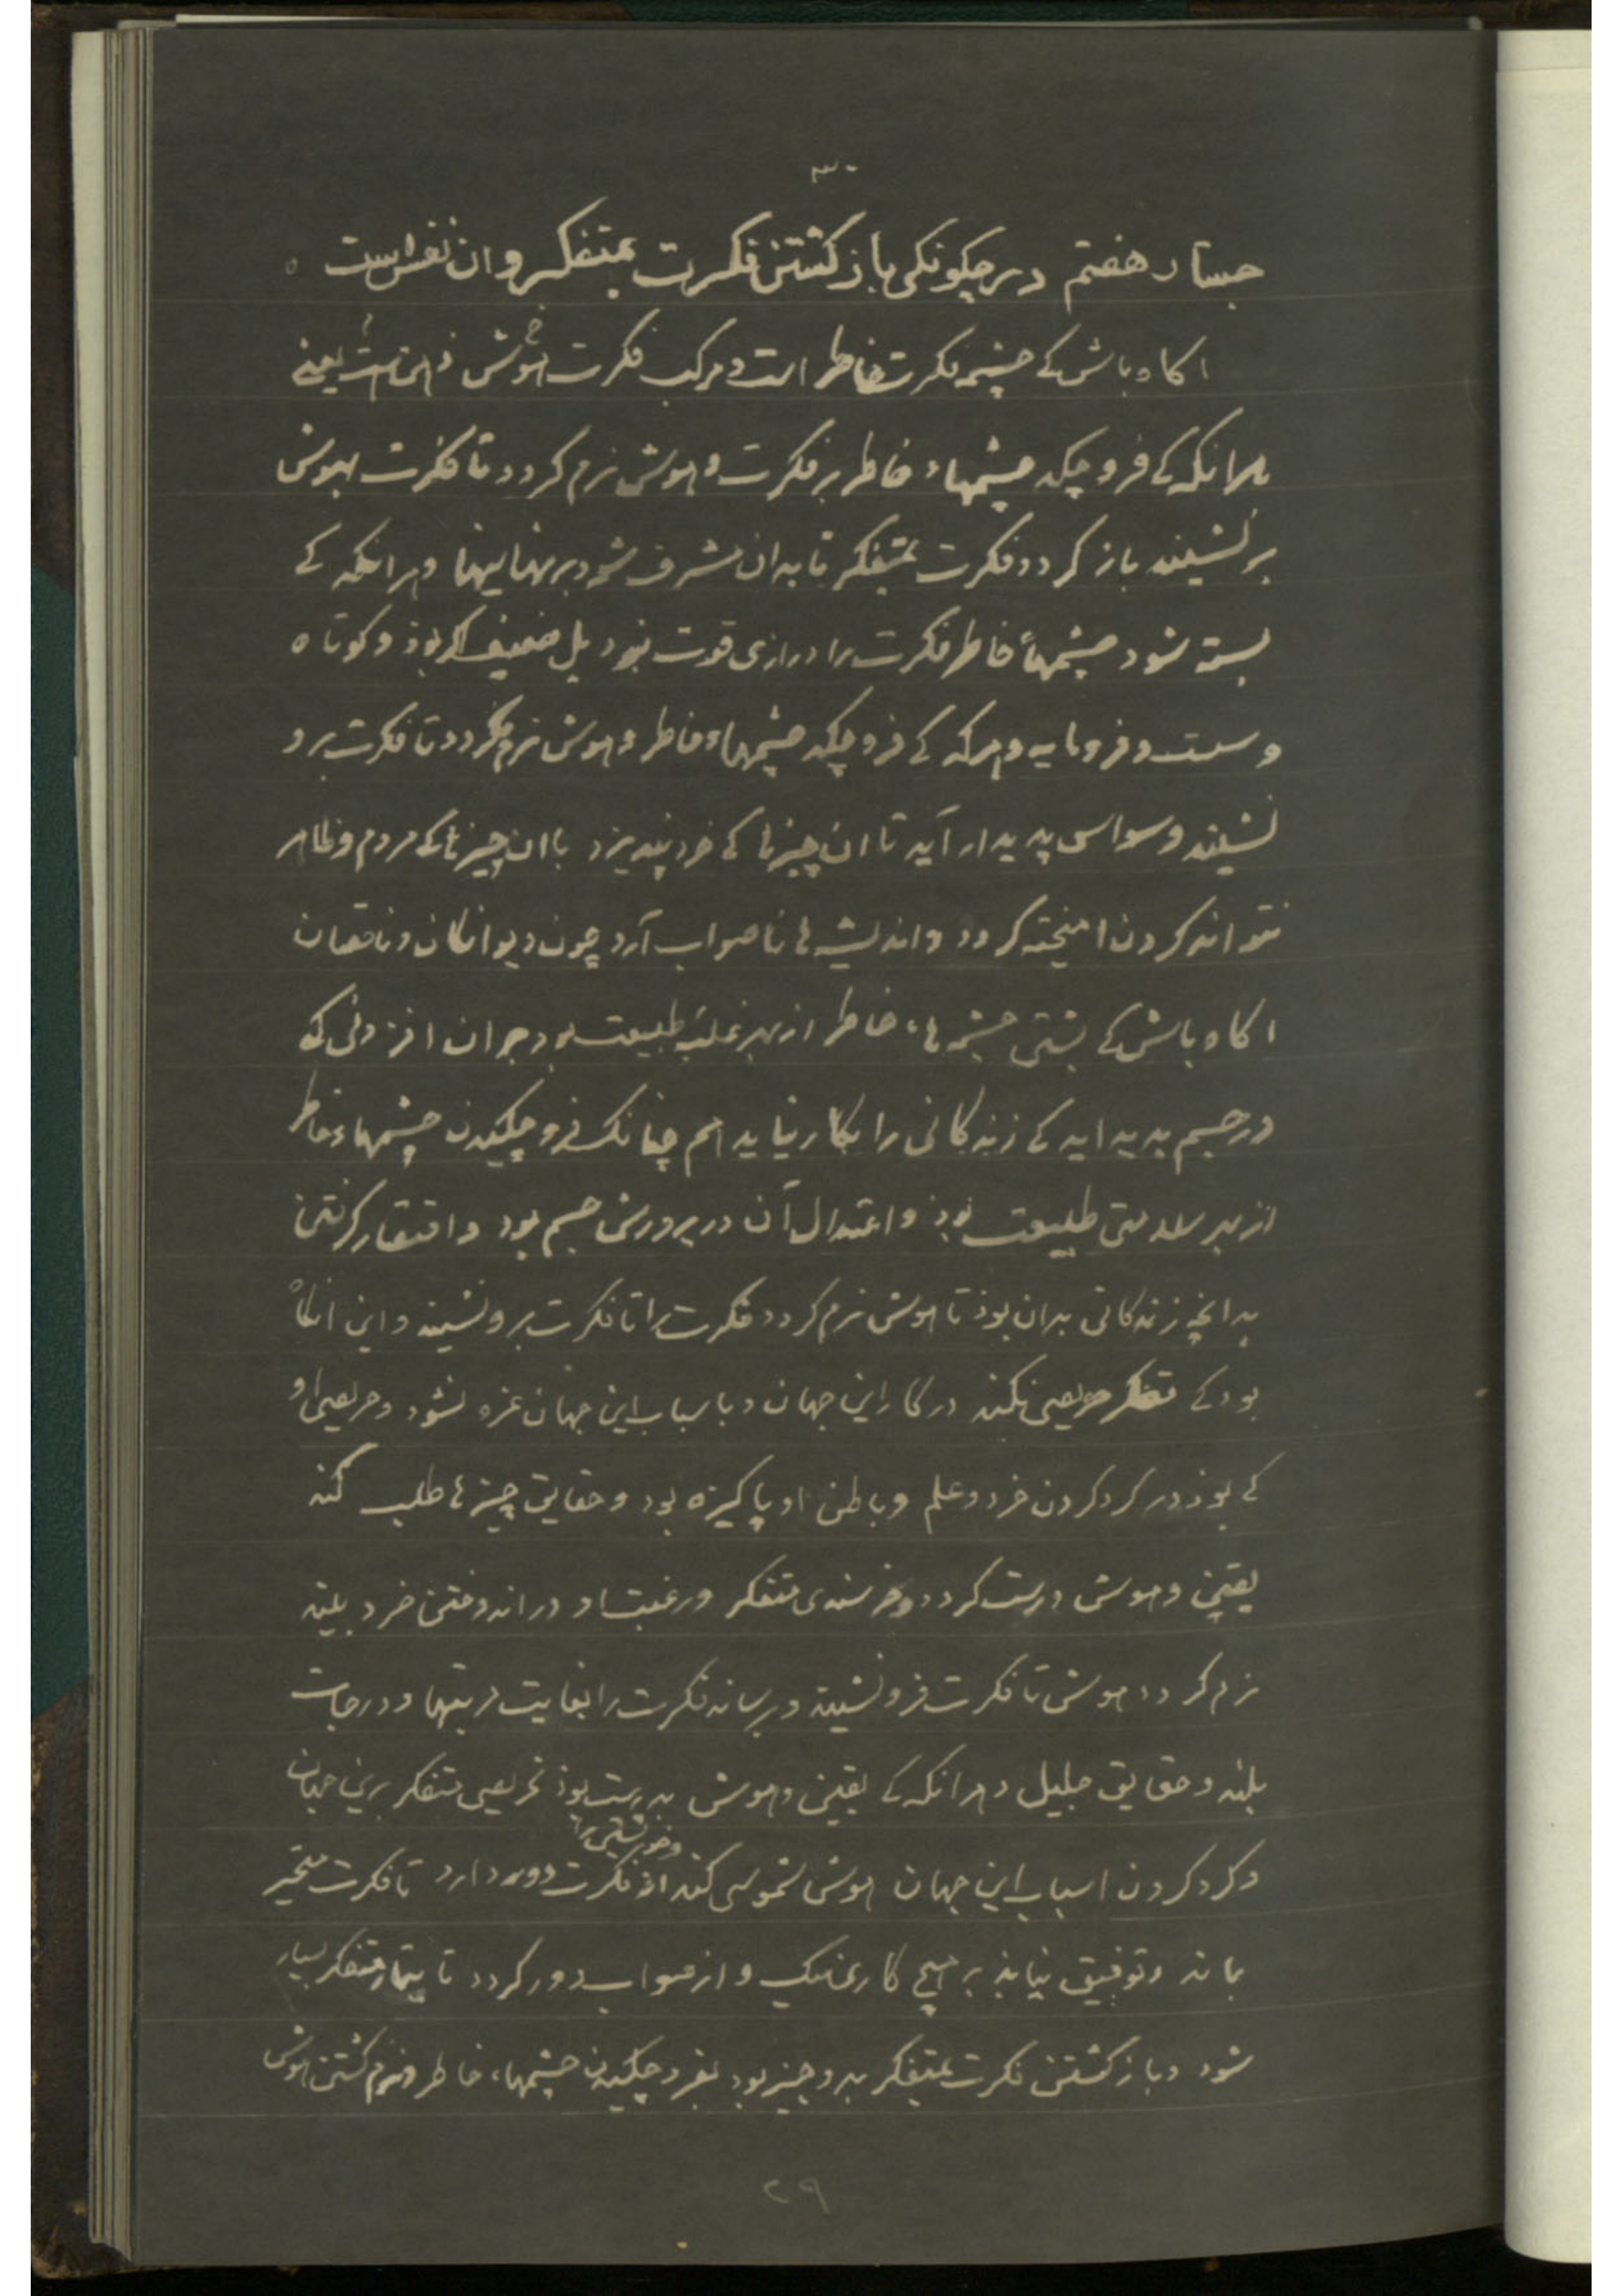 ۳۰
جستار هفتم در چکونکی باز کشتن فکرت بمتفکر و ان نفس است ه
اکاه باش کے چشمه فکرت خاطر است و مرکب فکرت هوش است یعنے
هرانکه کے فرو چکد چشمهاء خاطر بر فکرت و هوش نرم کردد تا فکرت بهوش
بر نشیند باز کردد فکرت بمتفکر تا بدان مشرف شود بر نهانیها و هرانکه کے
بسته شود چشمهاء خاطر فکرت را درازی قوت نبود بل ضعیف بوذ و کوتاه
و سست و فرومایه و هرکه کے فرو چکد چشمهاء خاطر و هوش نرم نکردد تا فکرت برو
نشیند وسواس پدیدار آید تا ان چیزها کے خرد نپذیرد با ان چیزها کے مردم ظاهر
نتواند کردن امیخته کردد و اندیشه ها ناصواب آرد چون دیوانکان و ناقصان
اکاه باش کے بستن چشمه هاء خاطر از بهر غلبهٔ طبیعت بود بران افزونی که
در جسم پدید اید کے زندکانی را بکار نیاید هم چنانک فرو چکیدن چشمهاء خاطر
از بهر سلامتی طبیعت بوذ و اعتدال آن در پرورش جسم بود و اقتصار کرفتن
بدانچه زندکانی بدان بوذ تا هوش نرم کردد فکرت را تا فکرت برو نشیند و این انکاه
بود کے متفکر حریصی نکند در کار این جهان و باسباب این جهان غره نشود و حریصی او
کے بوذ در کرد کردن خرد و علم و باطن او پاکیزه بود و حقایق چیزها طلب کند
یقین و هوش درست کردد و خرسندی متفکر و رغبت او در اندوختن خرد بلند
نرم کردد هوش تا فکرت فرو نشیند و برساند فکرت را بغایت مرتبها و درجات
بلند و حقایق جلیل و هرانکه کے یقین و هوش بدرست بوذ حریصی متفکر برین جهان
و کرد کردن اسباب این جهان هوش شموسی کند و خویشتن را از فکرت دور دارد تا فکرت متحیر
بماند و توفیق نیابد بر هیچ کار نیک و از صواب دور کردد تا تیمار متفکر بسیار
شود و باز کشتن فکرت بمتفکر بدو چیز بود بفرو چکیدن چشمهاء خاطر و نرم کشتن هوش
۲۹